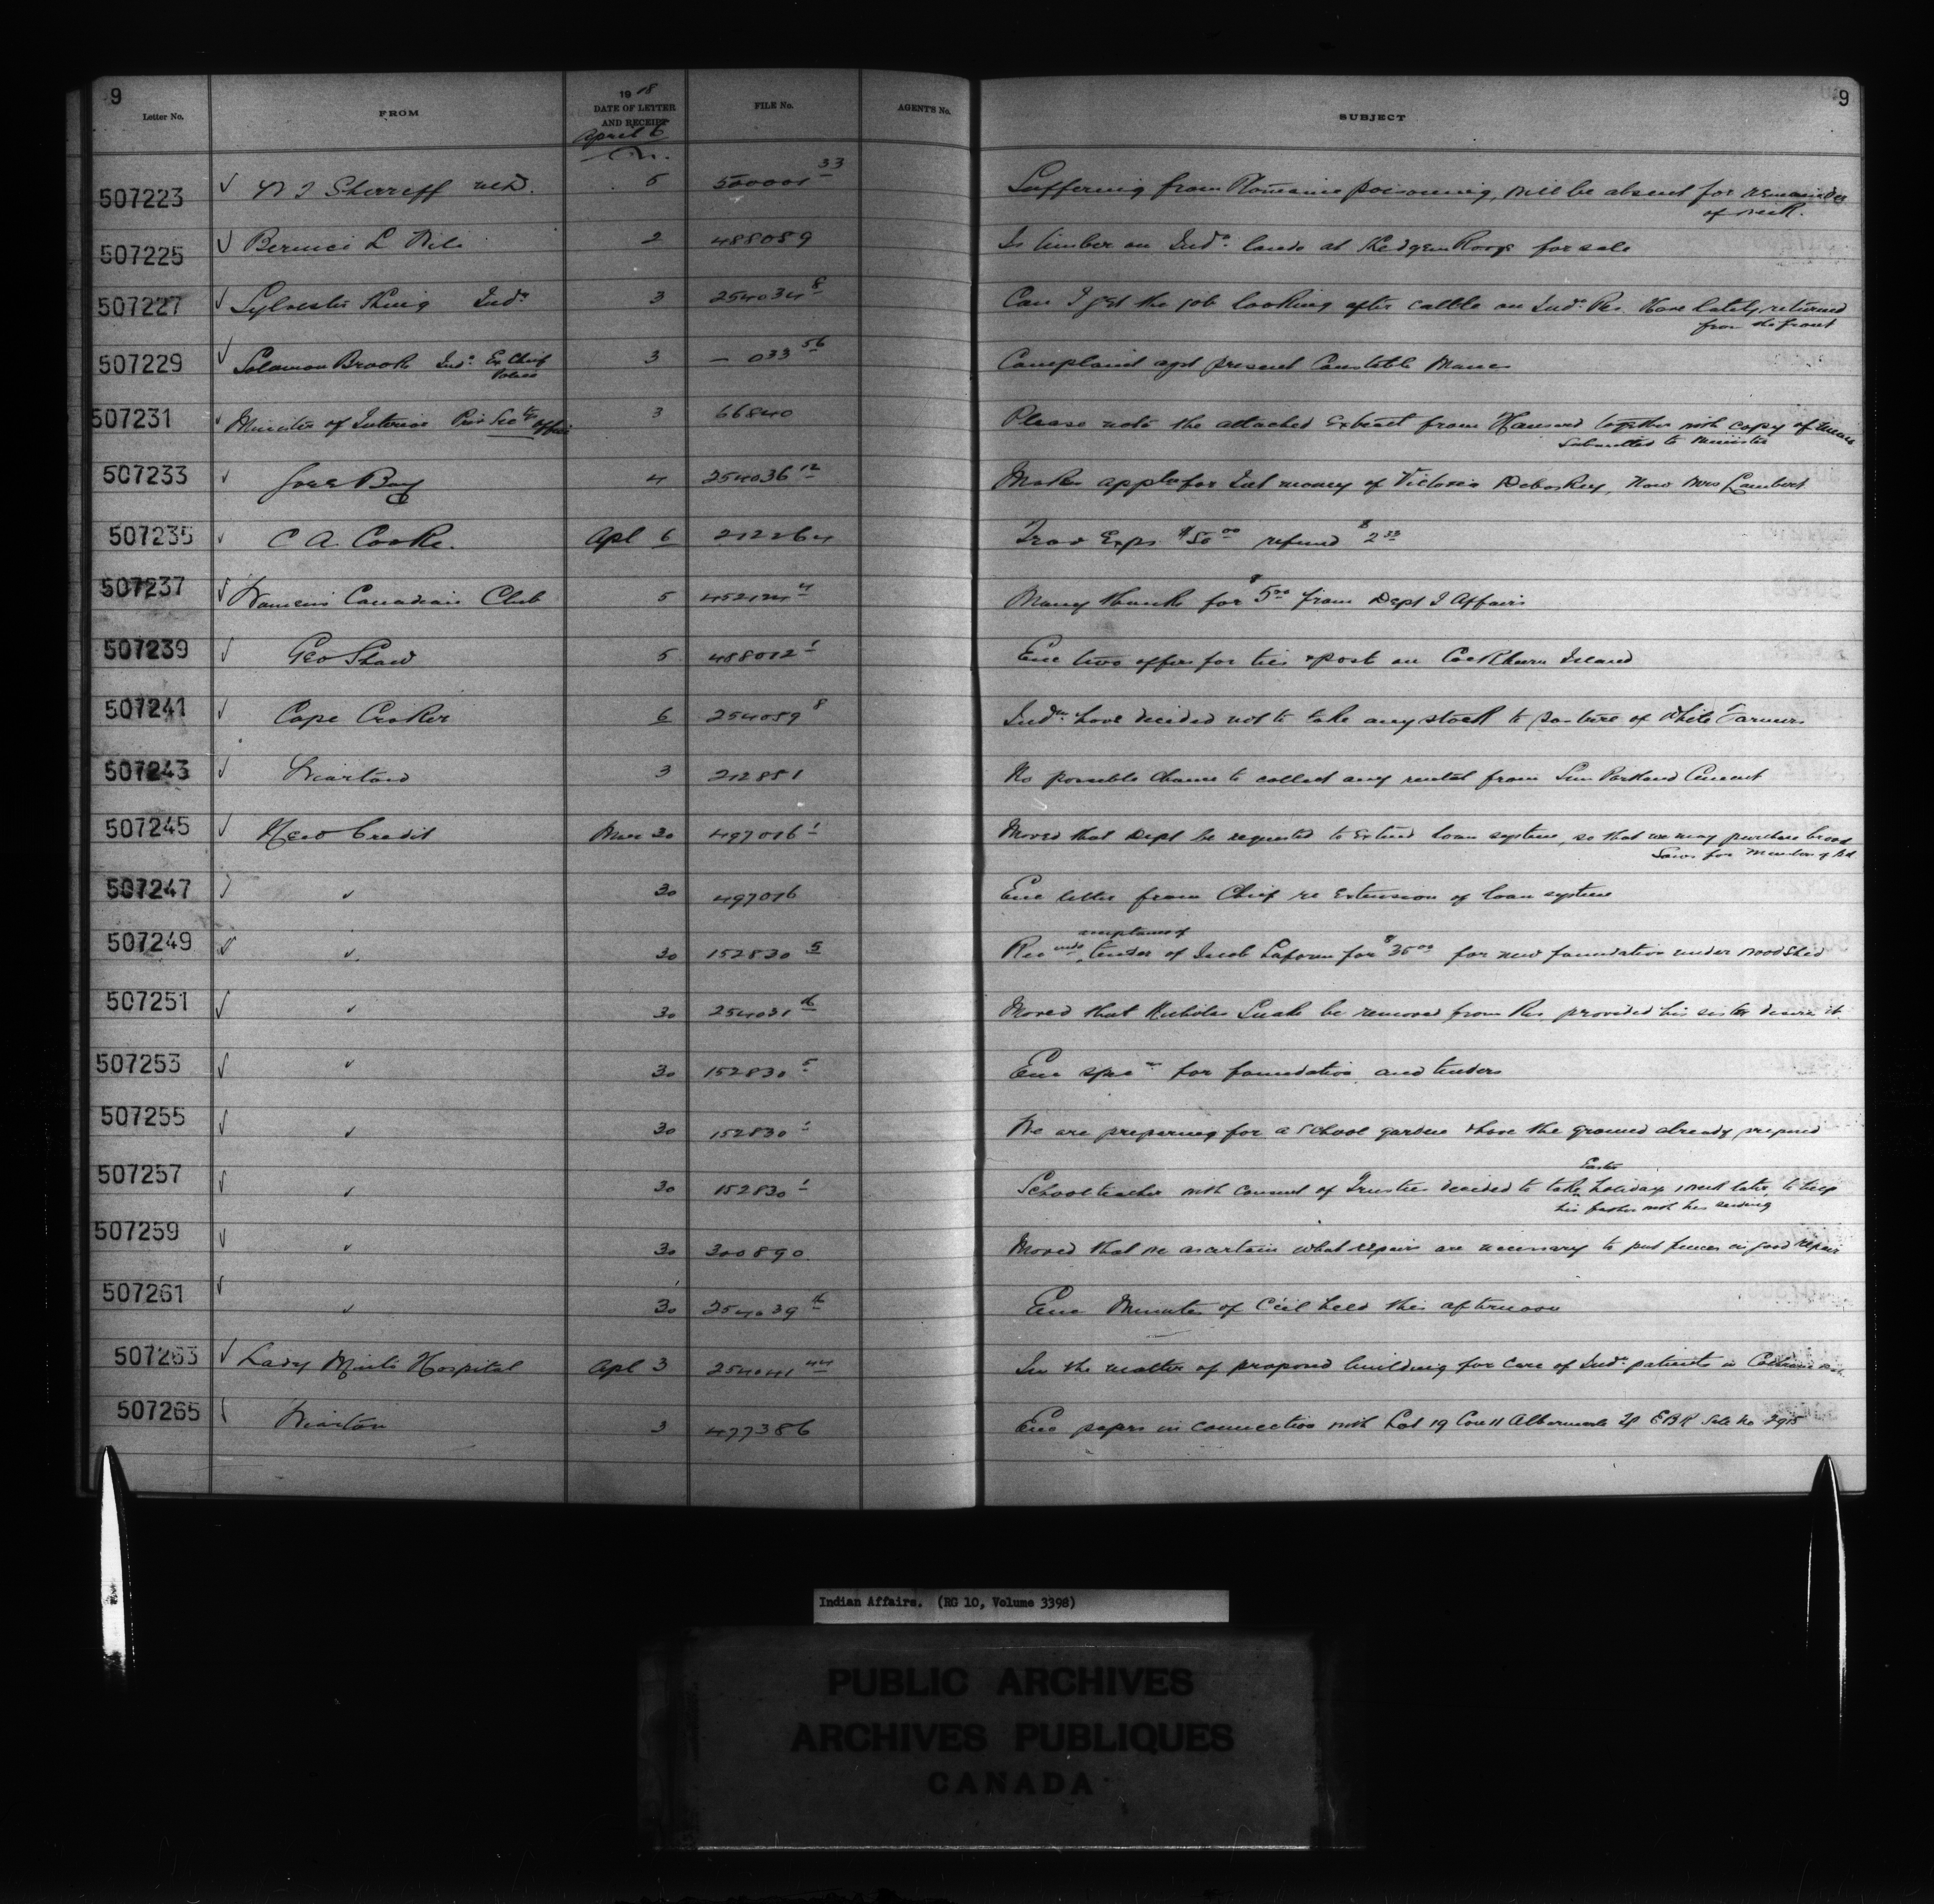 9
9
Letter No. FROM 1918 DATE OF LETTER AND RECEIPT FILE No. AGENTS No. SUBJECT
April 6
507223 Sherreff 5 500001 33 Suffering from Ptomaine poisoning, will be absent for remainder
of week.
507225 Bernice L 2 488089 Is timber on Inds. lands at for sale
507227 Sylvester King Ind. 3 254034 8 Can I get the job looking after cattle on Ind. Res. Have lately returned
from the front
507229 Solomon Brook Ind. Ex Chief 3 — 033 56 Complaint agst present Constable
507231 Minister of Interior Priv Secty Office 3 66840 Please note the attached Extract from Hansard together with copy of
submitted to Minister
507233 Gore Bay 4 254036 12 Makes appln for Int money of Victoria, now Mrs Lambert
507235 C A. Cooke. Apl 6 212264 Trav Exps $50 00 refund $2 33
507237 Womens Canadian Club 5 452124 4 Many thanks for $5 00 from Dept I Affairs
507239 Geo Shaw 5 488012 1 Enc two offers for ties & post on Cockburn Island
507241 Cape Croker 6 254089 8 Inds have decided not to take any stock to pasture of White Farmers
507243 Wiarton 3 212851 No possible chance to collect any rental from Sun Portland Cement
507245 New Credit Mar 30 497016 1 Moved that Dept be requested to extend loan system, so that we may purchase brood
Sows for Members of Bd
507247 " 30 497016 Enc letter from Chief re Extension of loan system
507249 " 30 152830 5 Recomds acceptance of tender of Jacob for $35 00 for new foundation under woodshed
507251 " 30 254031 16 Moved that Nicholas be removed from Res. provided his sister desire it.
507253 " 30 152830 5 Enc specns for foundation and tenders
507255 " 30 152830 1 We are preparing for a school garden & have the ground already prepared
507257 " 30 152830 1 School teacher with consent of Trustees decided to take Easter holidays 1 week later, to help
his father with his seeding
507259 " 30 300890 Moved that we ascertain what repairs are necessary to put fences in good repair
507261 " 30 254039 16 Enc Minutes of Ccil held this afternoon
507263 Lady Minto Hospital Apl 3 254041 44 In the matter of proposed building for care of Ind. patients in
507265 Wiarton 3 477386 Enc papers in connection with Lot 19 Con 11 Albermarle Tp E B R Sale No 2915
Indian Affairs. (RG 10, Volume 3398)
PUBLIC ARCHIVES
ARCHIVES PUBLIQUES
CANADA